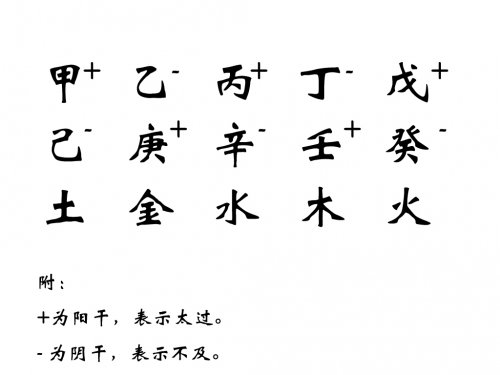 甲+ 乙- 丙+ 丁- 戊+
己- 庚+ 辛- 壬+ 癸-
土 金 水 木 火
附：
+为阳干，表示太过。
-为阴干，表示不及。